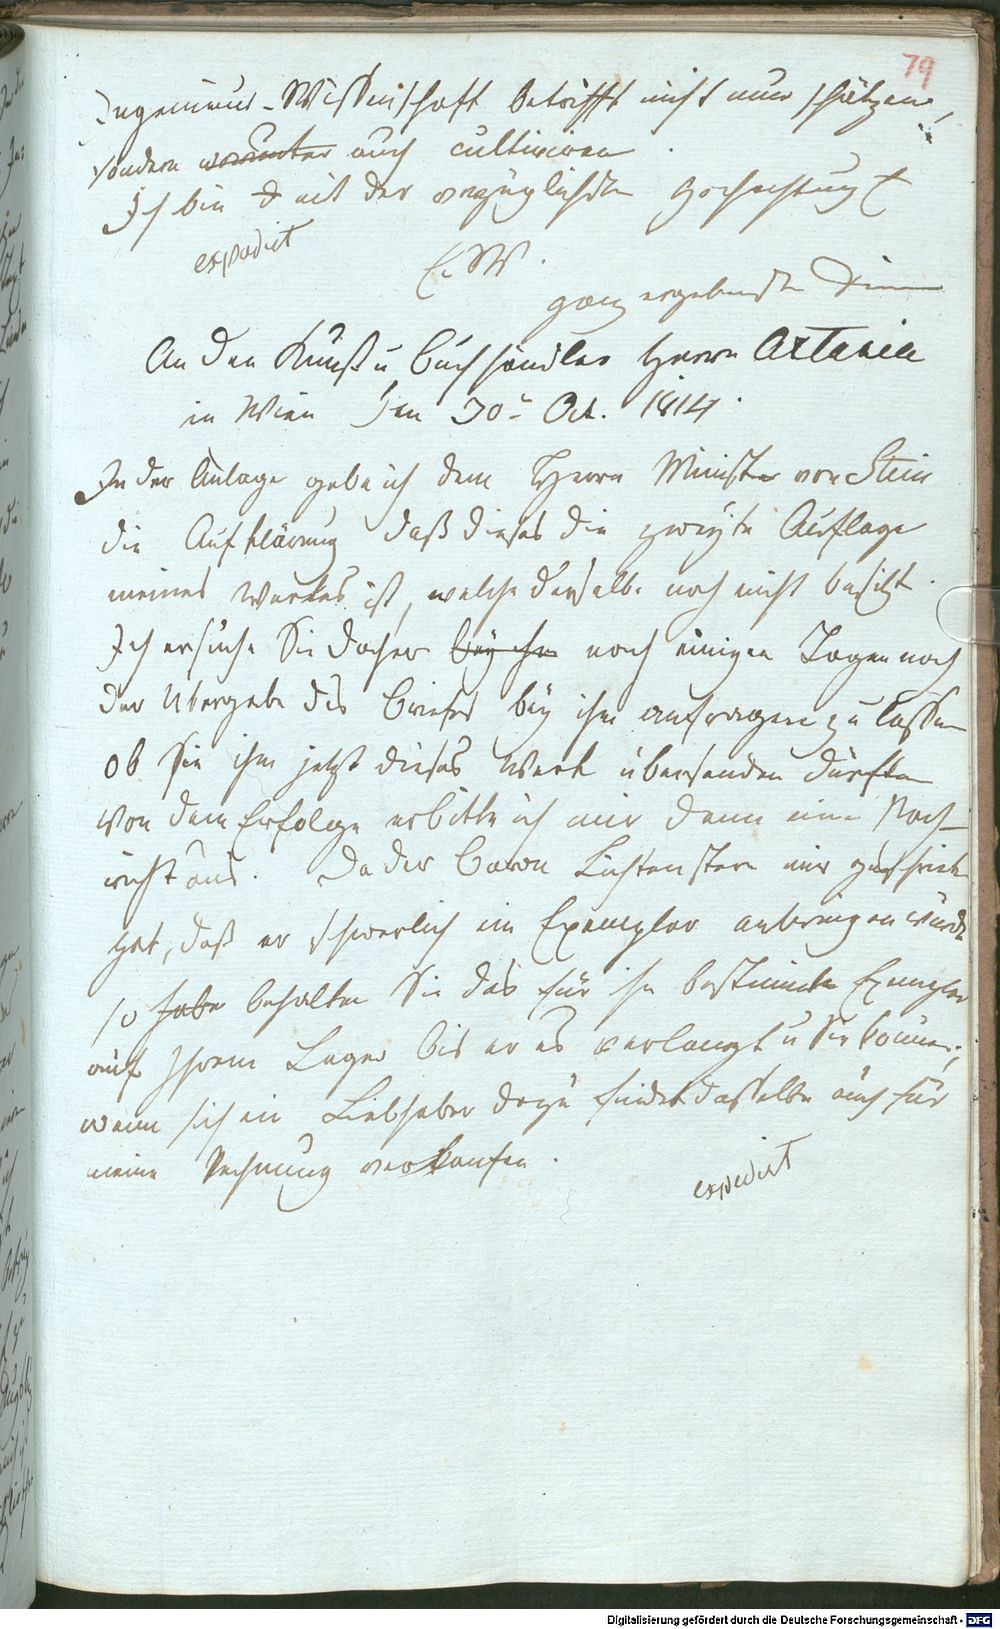 79
Ingenieur-Wissenschaft betrifft nicht nur schätzen,
sondern auch cultiviren.
Ich bin mit der vorzüglichsten Hochachtung
expedirt
E. W.
ganz ergebenster Diener
An den Kunst u Buchhändler Herrn Artaria
in Wien den 30n Oct. 1814.
In der Anlage gebe ich dem Herrn Minister von Stein
die Aufklärung daß dieses die zweyte Auflage
meines Werkes ist, welche derselbe noch nicht besitzt.
Ich ersuche Sie daher bey ihm nach einigen Tagen nach
der Übergabe des Briefes bey ihm anfragen zu lassen
ob Sie ihm jetzt dieses Werk übersenden dürften
Von dem Erfolge erbitte ich mir dann eine Nach-
richt aus. Da der Baron Lichtenstern mir geschrieben
hat, daß er schwerlich ein Exemplar anbringen würde
so habe behalten Sie das für ihn bestimmte Exemplar
auf Ihrem Lager bis er es verlangt u Sie können,
wenn sich ein Liebhaber dazu findet dasselbe auch für
meine Rechnung verkaufen.
expedirt
Digitalisierung gefördert durch die Deutsche Forschungsgemeinschaft - DFG